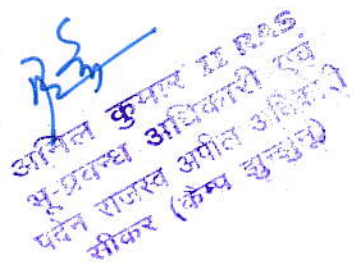 अनिल कुमार II R.A.S.
भू-प्रबन्ध अधिकारी एवं
पदेन राजस्व अपील अधिकारी
सीकर (कैम्प झुन्झुनू)